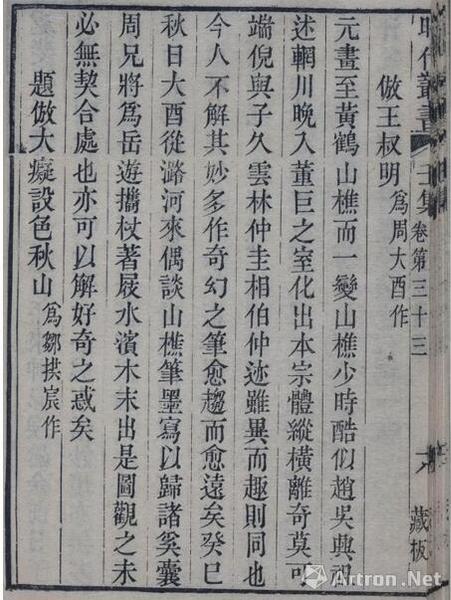 昭代叢書 集卷第三十三 六 藏板
倣王叔明爲周大酉作
元畫至黃鶴山樵而一變山樵少時酷似趙吳興祖
述輞川晚入董巨之室化出本宗體縱橫離奇莫可
端倪與子久雲林仲圭相伯仲迹雖異而趣則同也
今人不解其妙多作奇幻之筆愈趨而愈遠矣癸巳
秋日大酉從潞河來偶談山樵筆墨寫以歸諸奚囊
周兄將爲岳遊擕杖著屐水濱木末出是圖觀之未
必無契合處也亦可以解好奇之惑矣
題倣大癡設色秋山爲鄒拱宸作
Artron.Net